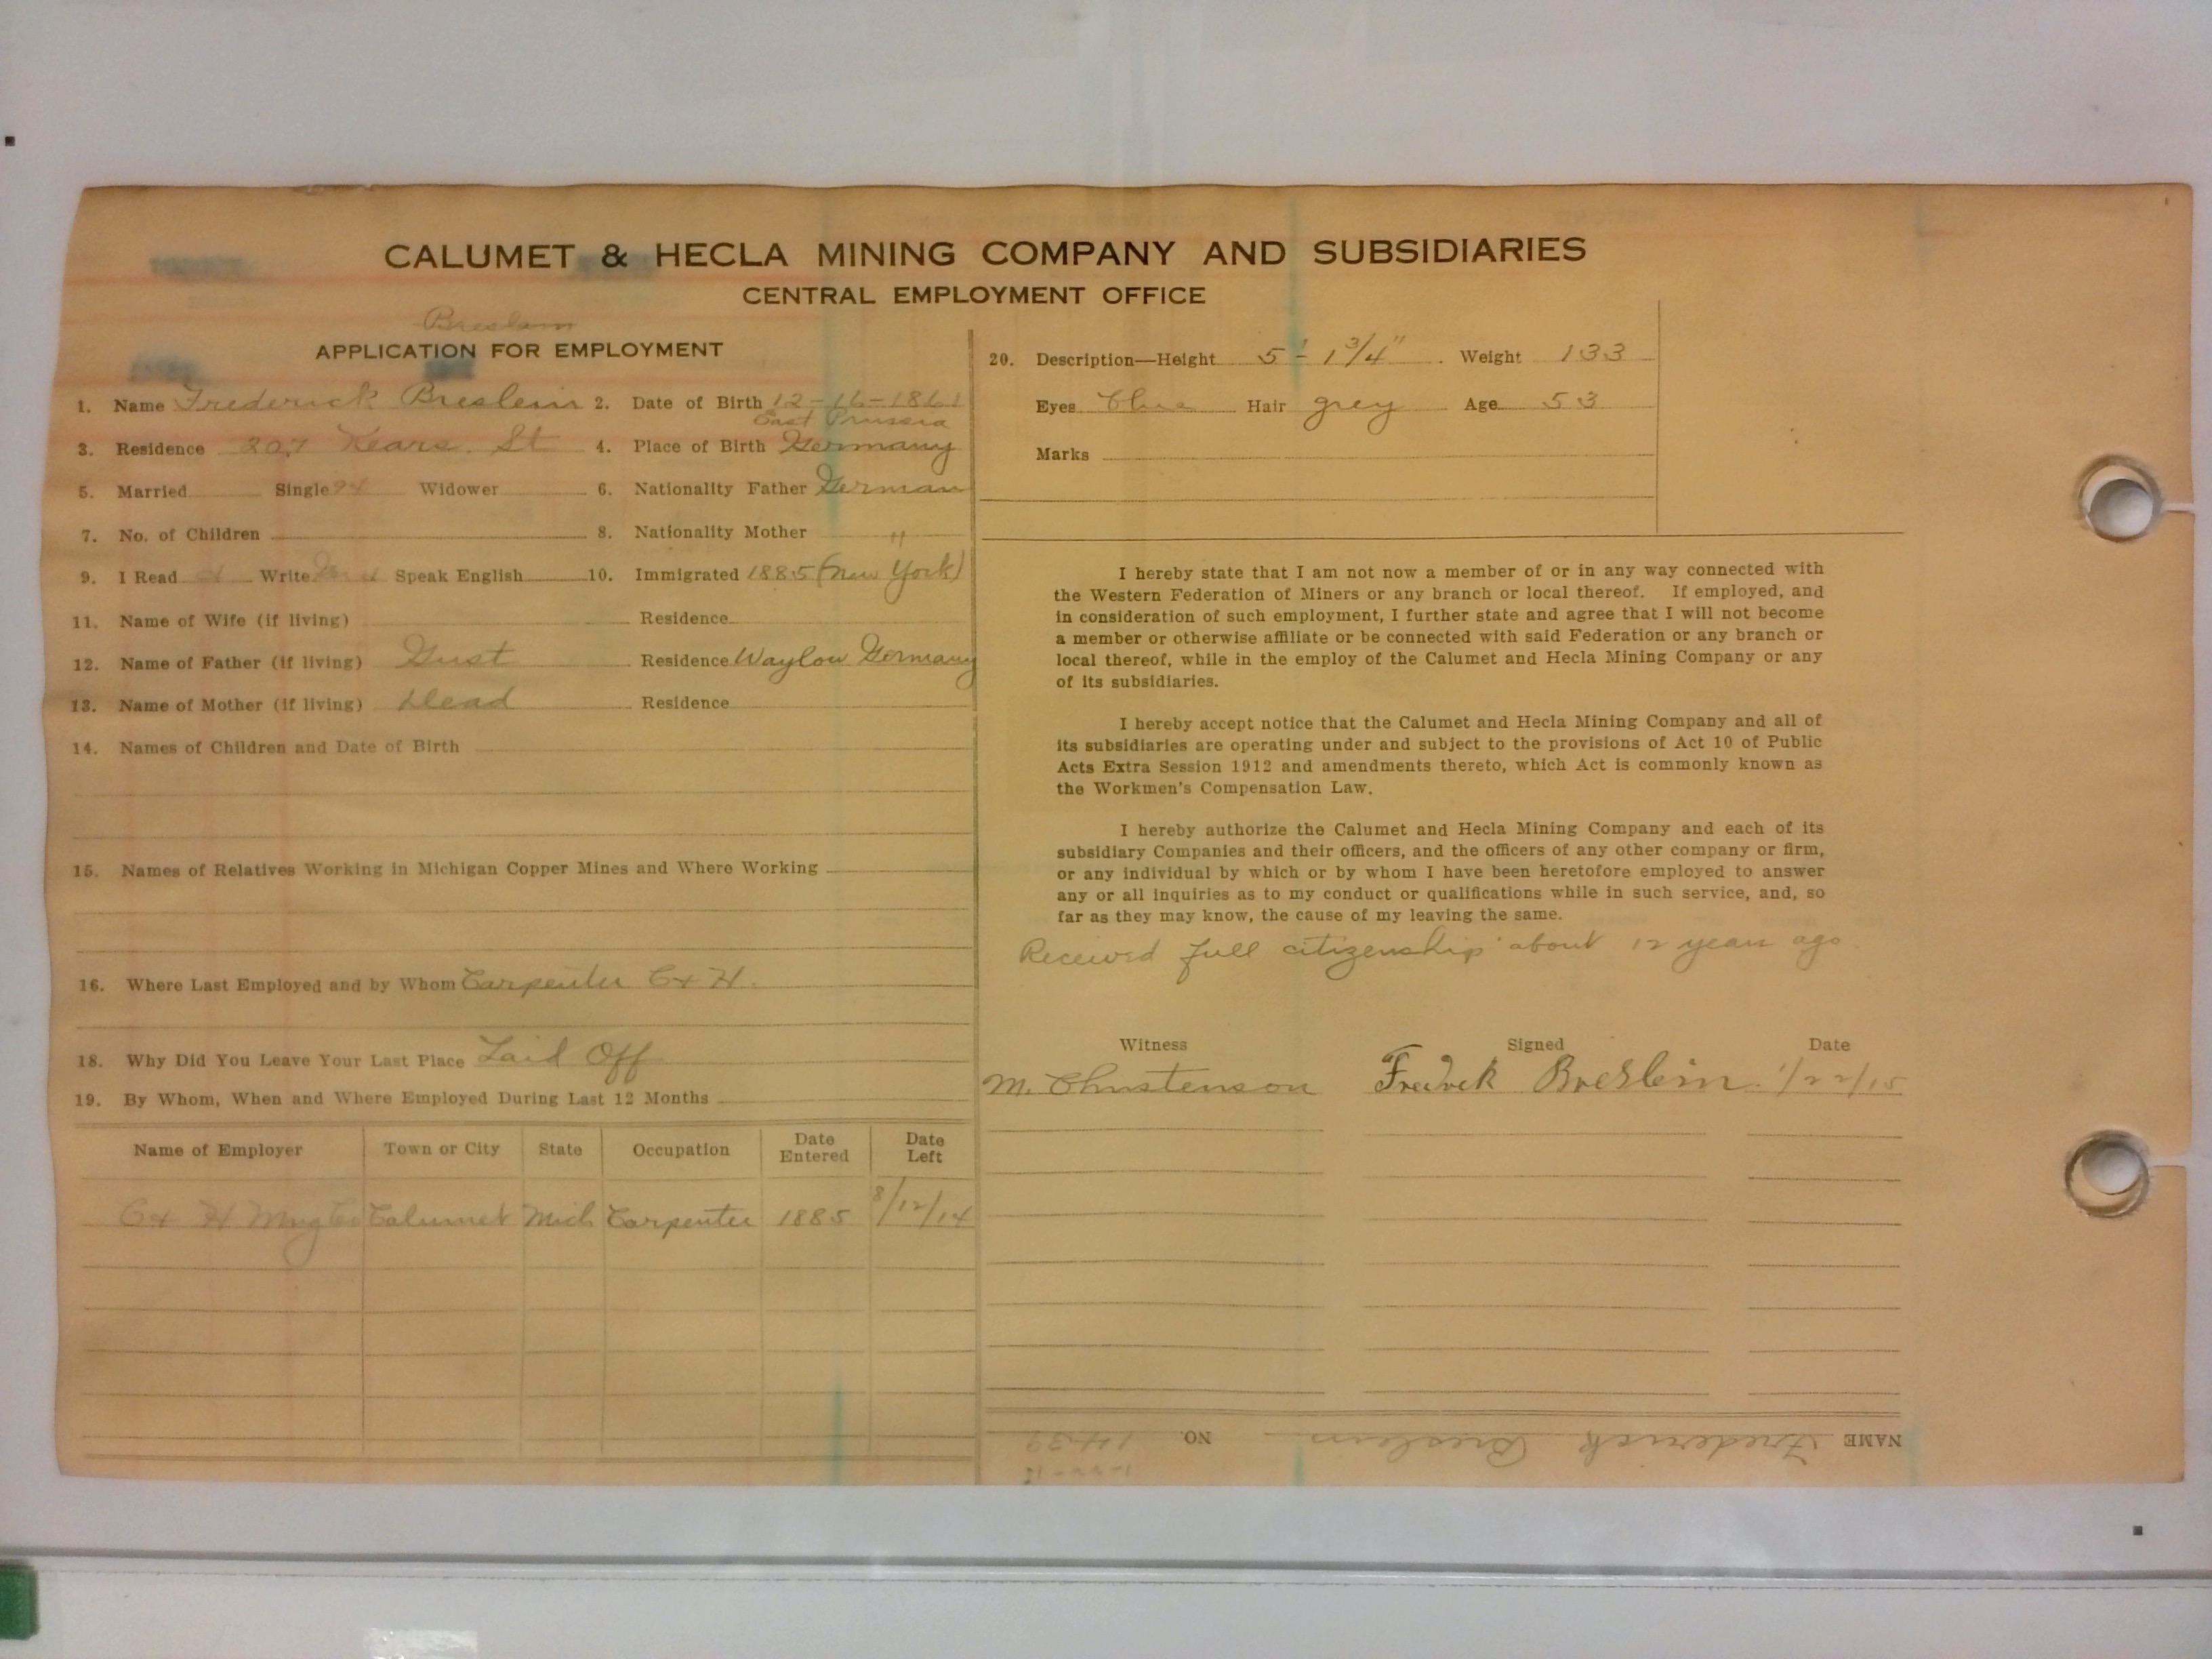 CALUMET & HECLA MINING COMPANY AND SUBSIDIARIES
CENTRAL EMPLOYMENT OFFICE
APPLICATION FOR EMPLOYMENT
1. Name Frederick Breslein 2. Date of Birth 12-16-1861
East Prussia
3. Residence 307 Kears. St 4. Place of Birth Germany
5. Married Single Widower 6. Nationality Father German
7. No. of Children 8. Nationality Mother "
9. I Read Write Speak English 10. Immigrated 1885 (New York)
11. Name of Wife (if living) Residence
12. Name of Father (if living) Gust Residence Waylow Germany
13. Name of Mother (if living) Dead Residence
14. Names of Children and Date of Birth
15. Names of Relatives Working in Michigan Copper Mines and Where Working
16. Where Last Employed and by Whom Carpenter C & H.
18. Why Did You Leave Your Last Place Laid Off
19. By Whom, When and Where Employed During Last 12 Months
Name of Employer Town or City State Occupation Date Entered Date Left
C & H Mng Co Calumet Mich Carpenter 1885 8/12/14
20. Description—Height 5'-1 3/4" Weight 133
Eyes blue Hair grey Age 53
Marks
I hereby state that I am not now a member of or in any way connected with
the Western Federation of Miners or any branch or local thereof. If employed, and
in consideration of such employment, I further state and agree that I will not become
a member or otherwise affiliate or be connected with said Federation or any branch or
local thereof, while in the employ of the Calumet and Hecla Mining Company or any
of its subsidiaries.
I hereby accept notice that the Calumet and Hecla Mining Company and all of
its subsidiaries are operating under and subject to the provisions of Act 10 of Public
Acts Extra Session 1912 and amendments thereto, which Act is commonly known as
the Workmen's Compensation Law.
I hereby authorize the Calumet and Hecla Mining Company and each of its
subsidiary Companies and their officers, and the officers of any other company or firm,
or any individual by which or by whom I have been heretofore employed to answer
any or all inquiries as to my conduct or qualifications while in such service, and, so
far as they may know, the cause of my leaving the same.
Received full citizenship about 12 years ago
Witness Signed Date
M. Christenson Fredrek Breslein 1/22/15
NAME Frederick Breslein NO. 1439
1-22-15